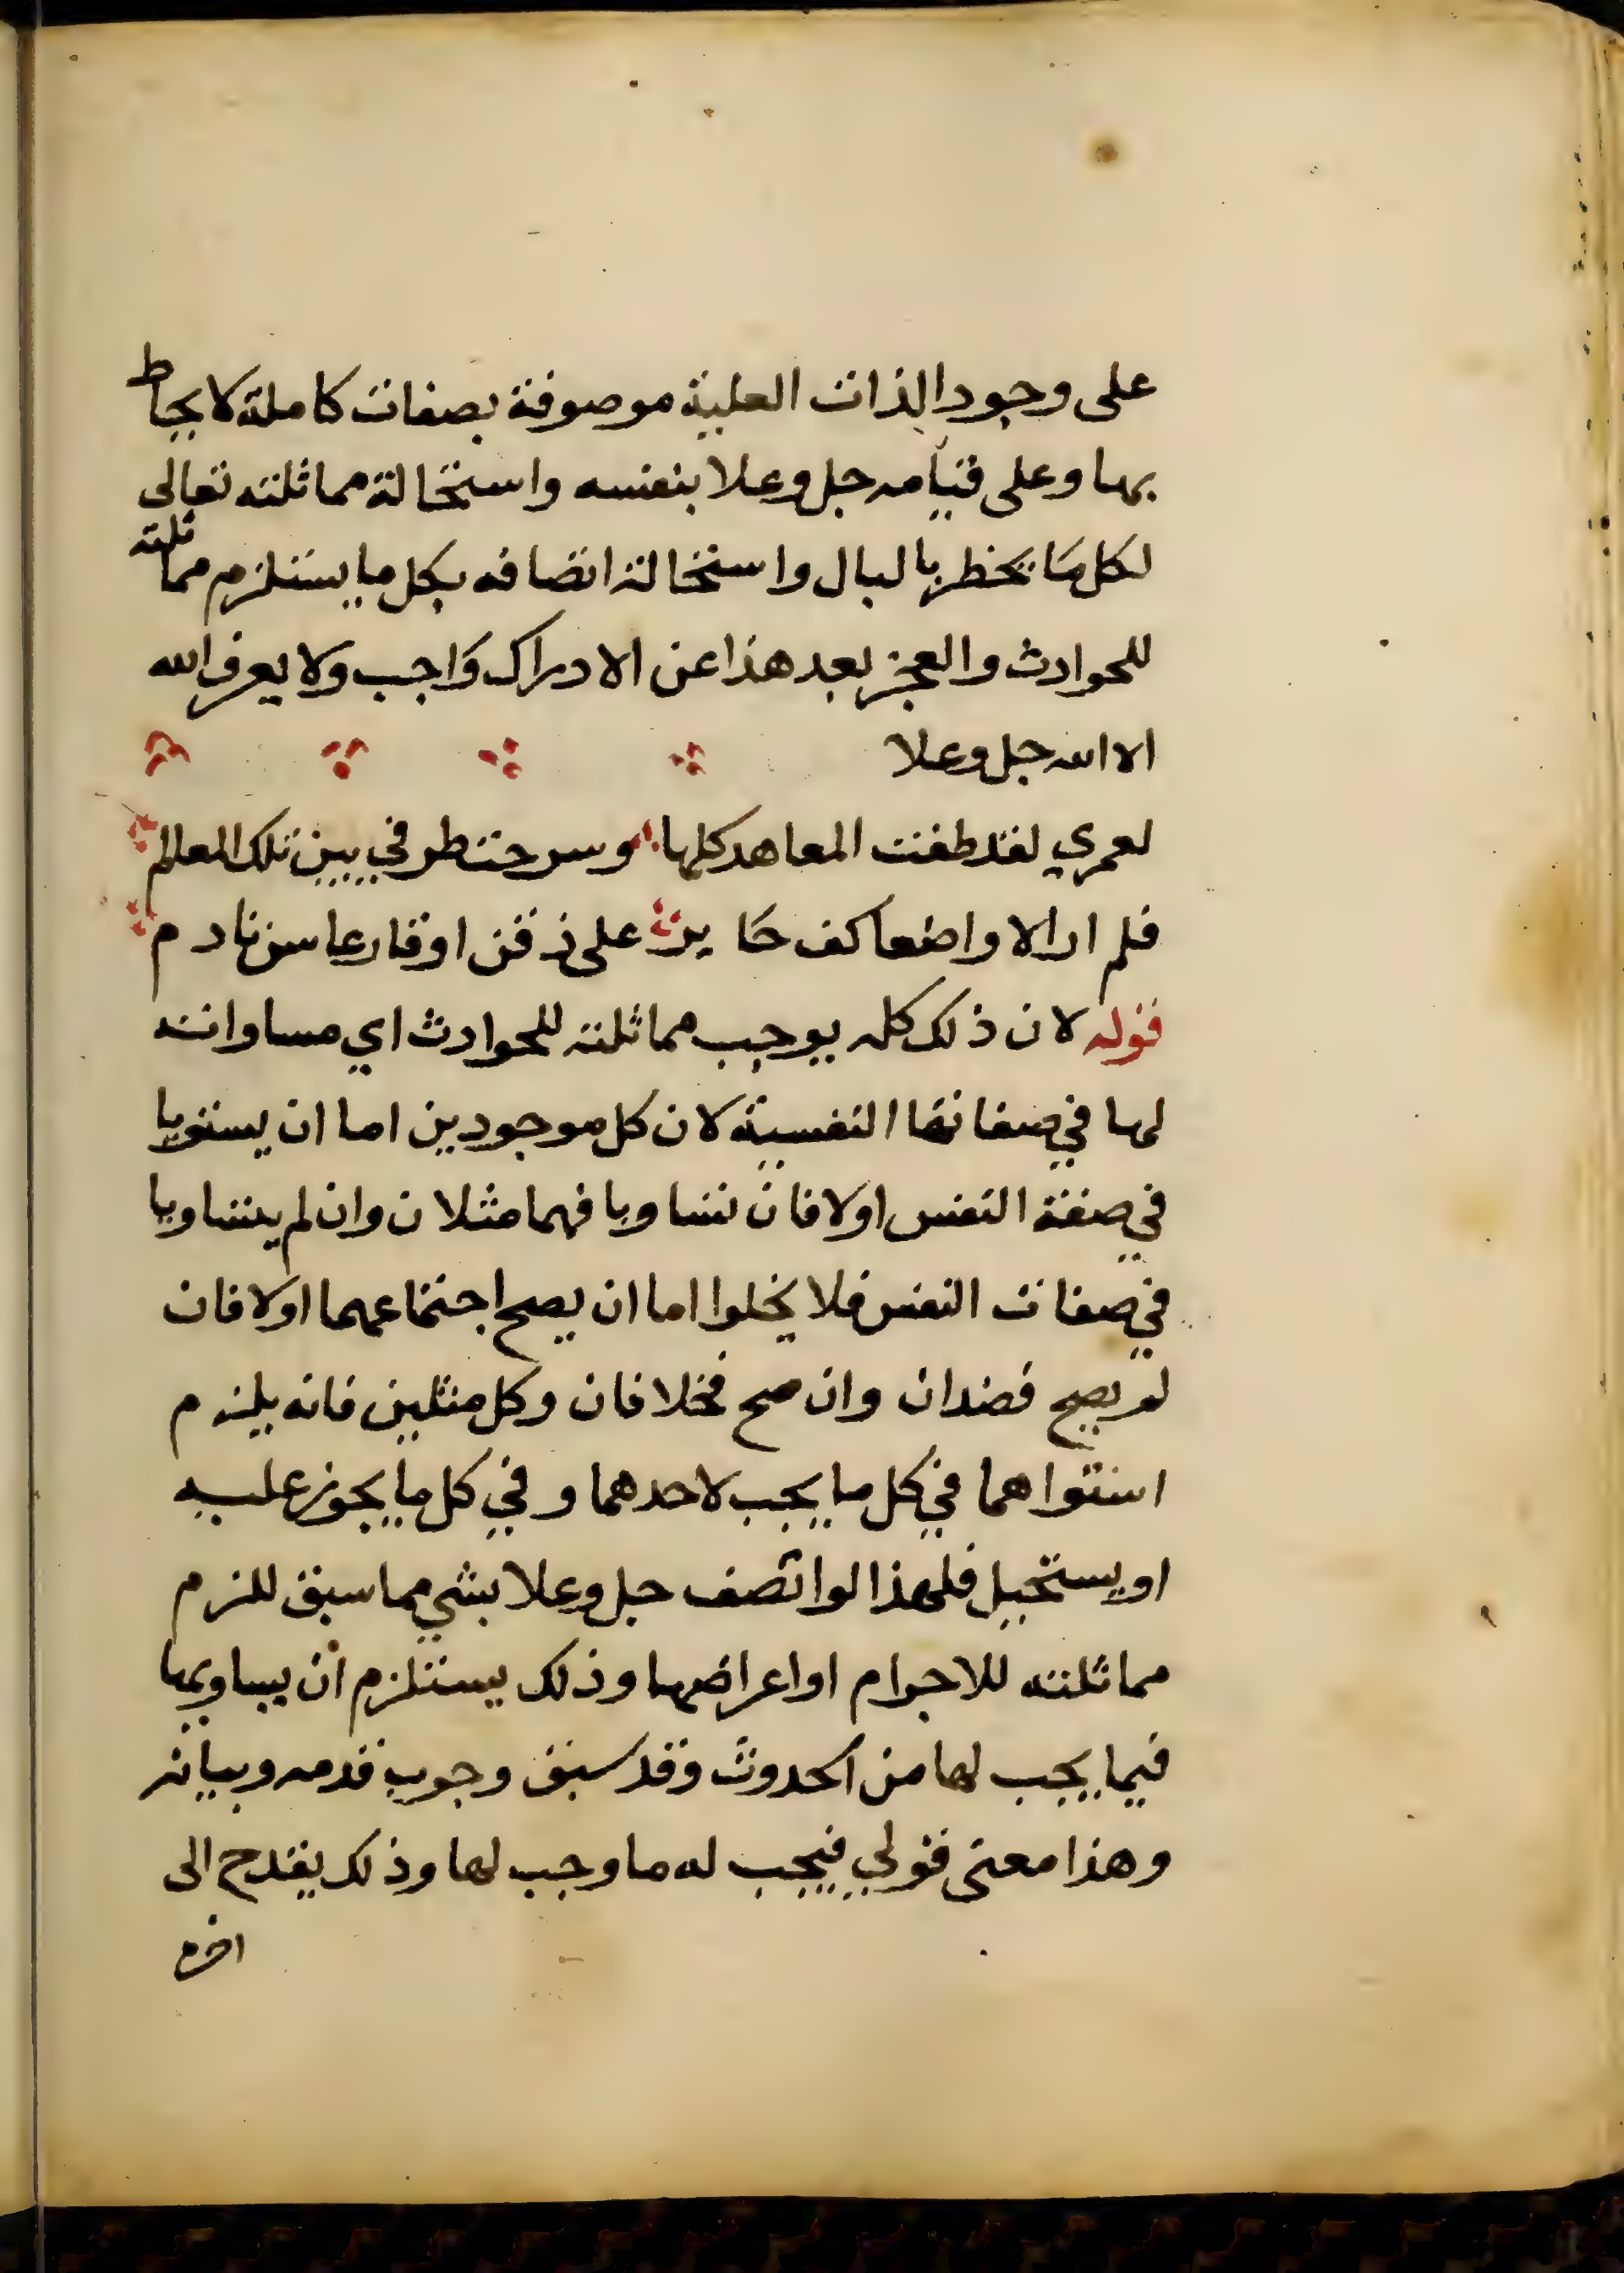 على وجود الذات العلية موصوفة بصفات كاملة لا يحاط
بها وعلى قيامه جل وعلا بنفسه واستحالة مماثلته تعالى
لكل ما يخطر بالبال واستحالة اتصافه بكل ما يستلزم مماثلته
للحوادث والعجز بعد هذا عن الادراك واجب ولا يعرف الله
الا الله جل وعلا
لعمري لقد طفت المعاهد كلها وسرحت طرفي بين تلك المعالم
فلم ار الا واضعا كف حاير على ذقن او قارعا سن نادم
قوله لان ذلك كله يوجب مماثلته للحوادث اي مساواته
لها في صفاتها النفسية لان كل موجودين اما ان يستويا
في صفة النفس اولا فان تساويا فهما مثلان وان لم يتساويا
في صفات النفس فلا يخلوا اما ان يصح اجتماعهما اولا فان
لم يصح فضدان وان صح فخلافان وكل مثلين فانه يلزم
استواهما في كل ما يجب لاحدهما وفي كل ما يجوز عليه
او يستحيل فلهذا لو اتصف جل وعلا بشي مما سبق للزم
مماثلته للاجرام او اعراضها وذلك يستلزم ان يساويها
فيما يجب لها من الحدوث وقد سبق وجوب قدمه وبيانه
وهذا معنى قولي فيجب له ما وجب لها وذلك يقدح الى
اخره